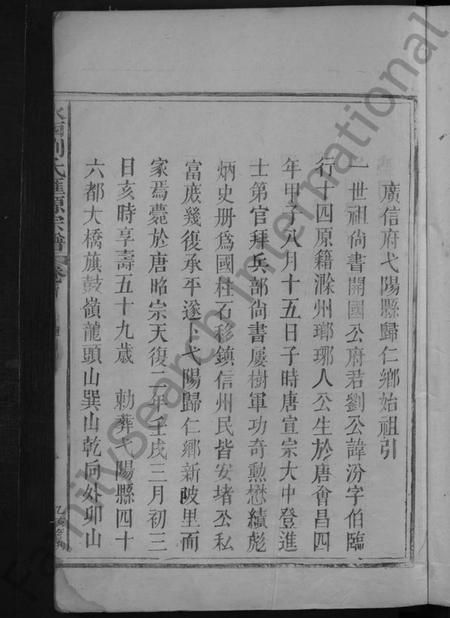 廣信府弋陽縣歸仁鄉始祖引
一世祖尚書開國公府君劉公諱汾字伯臨
行十四原籍滁州瑯琊人公生於唐會昌四
年甲子八月十五日子時唐宣宗大中登進
士第官拜兵部尚書屢樹軍功奇勲懋績彪
炳史册爲國柱石移鎮信州民皆安堵公私
富庻幾復承平遂卜弋陽歸仁鄉新陂里而
家焉薨於唐昭宗天復二年壬戌三月初三
日亥時享壽五十九歲 勅葬弋陽縣四十
六都大橋旗鼓嶺龍頭山巽山乾向如卯山
劉氏進源宗譜
FamilySearch International